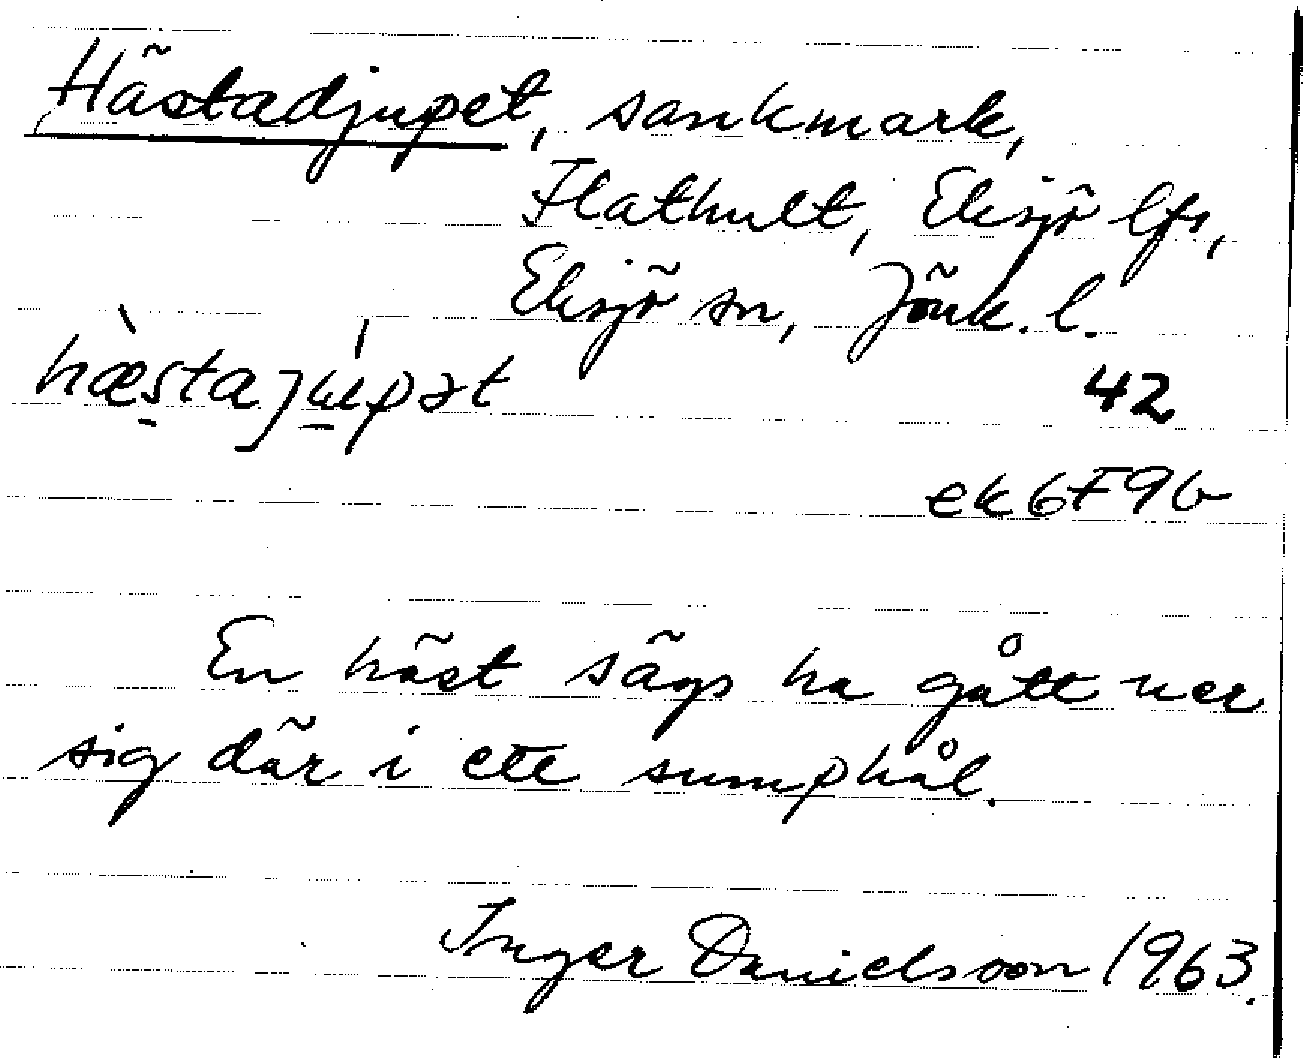 Hästadjupet, sankmark,
Flathult, Eksjö lfs,
Eksjö sn, Jönk. l.
hæstajupət
42
ek 6F9b
En häst sägs ha gått ner
sig där i ett sumphål.
Inger Danielsson 1963.